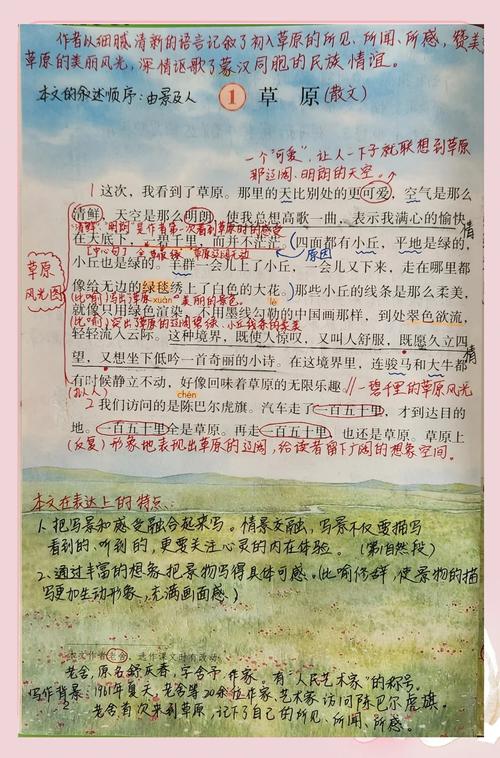 作者以细腻清新的语言记叙了初入草原的所见、所闻、所感,赞美
草原的美丽风光,深情讴歌了蒙汉同胞的民族情谊。
本文的叙述顺序:由景及人
1 草 原(散文)
一个"可爱",让人一下子就联想到草原
那辽阔、明朗的天空。
1这次,我看到了草原。那里的天比别处的更可爱,空气是那么
清鲜,天空是那么明朗,使我总想高歌一曲,表示我满心的愉快。
"清鲜、明朗"是作者第一次看到草原时的感受
在天底下,一碧千里,而并不茫茫。四面都有小丘,平地是绿的,
【中心句】
原因
小丘也是绿的。羊群一会儿上了小丘,一会儿又下来,走在哪里都
草原
风光图
像给无边的绿毯绣上了白色的大花。那些小丘的线条是那么柔美,
(比喻)写出了草原 xuàn 美丽的景色。 lè
就像只用绿色渲染,不用墨线勾勒的中国画那样,到处翠色欲流,
轻轻流入云际。这种境界,既使人惊叹,又叫人舒服,既愿久立四
望,又想坐下低吟一首奇丽的小诗。在这境界里,连骏马和大牛都
情
情
有时候静立不动,好像回味着草原的无限乐趣。//一碧千里的草原风光
(拟人) chén
2我们访问的是陈巴尔虎旗。汽车走了一百五十里,才到达目的
地。一百五十里全是草原。再走一百五十里,也还是草原。草原上
(反复)形象地表现出草原的辽阔,给读者留下广阔的想象空间。
本文在表达上的特点:
1、把写景和感受融合起来写。情景交融,写景不仅要描写
看到的、听到的,更要关注心灵的内在体验。(第1自然段)
2、通过丰富的想象把景物写得具体可感。(比喻修辞,使景物的描
写更加生动形象,充满画面感)
本文作者老舍,选作课文时有改动。
老舍,原名舒庆春,字舍予,作家。有"人民艺术家"的称号。
写作背景:1961年夏天,老舍等20余位作家、艺术家访问陈巴尔虎旗。
2
老舍首次来到草原,记下了自己的所见、所闻、所感。